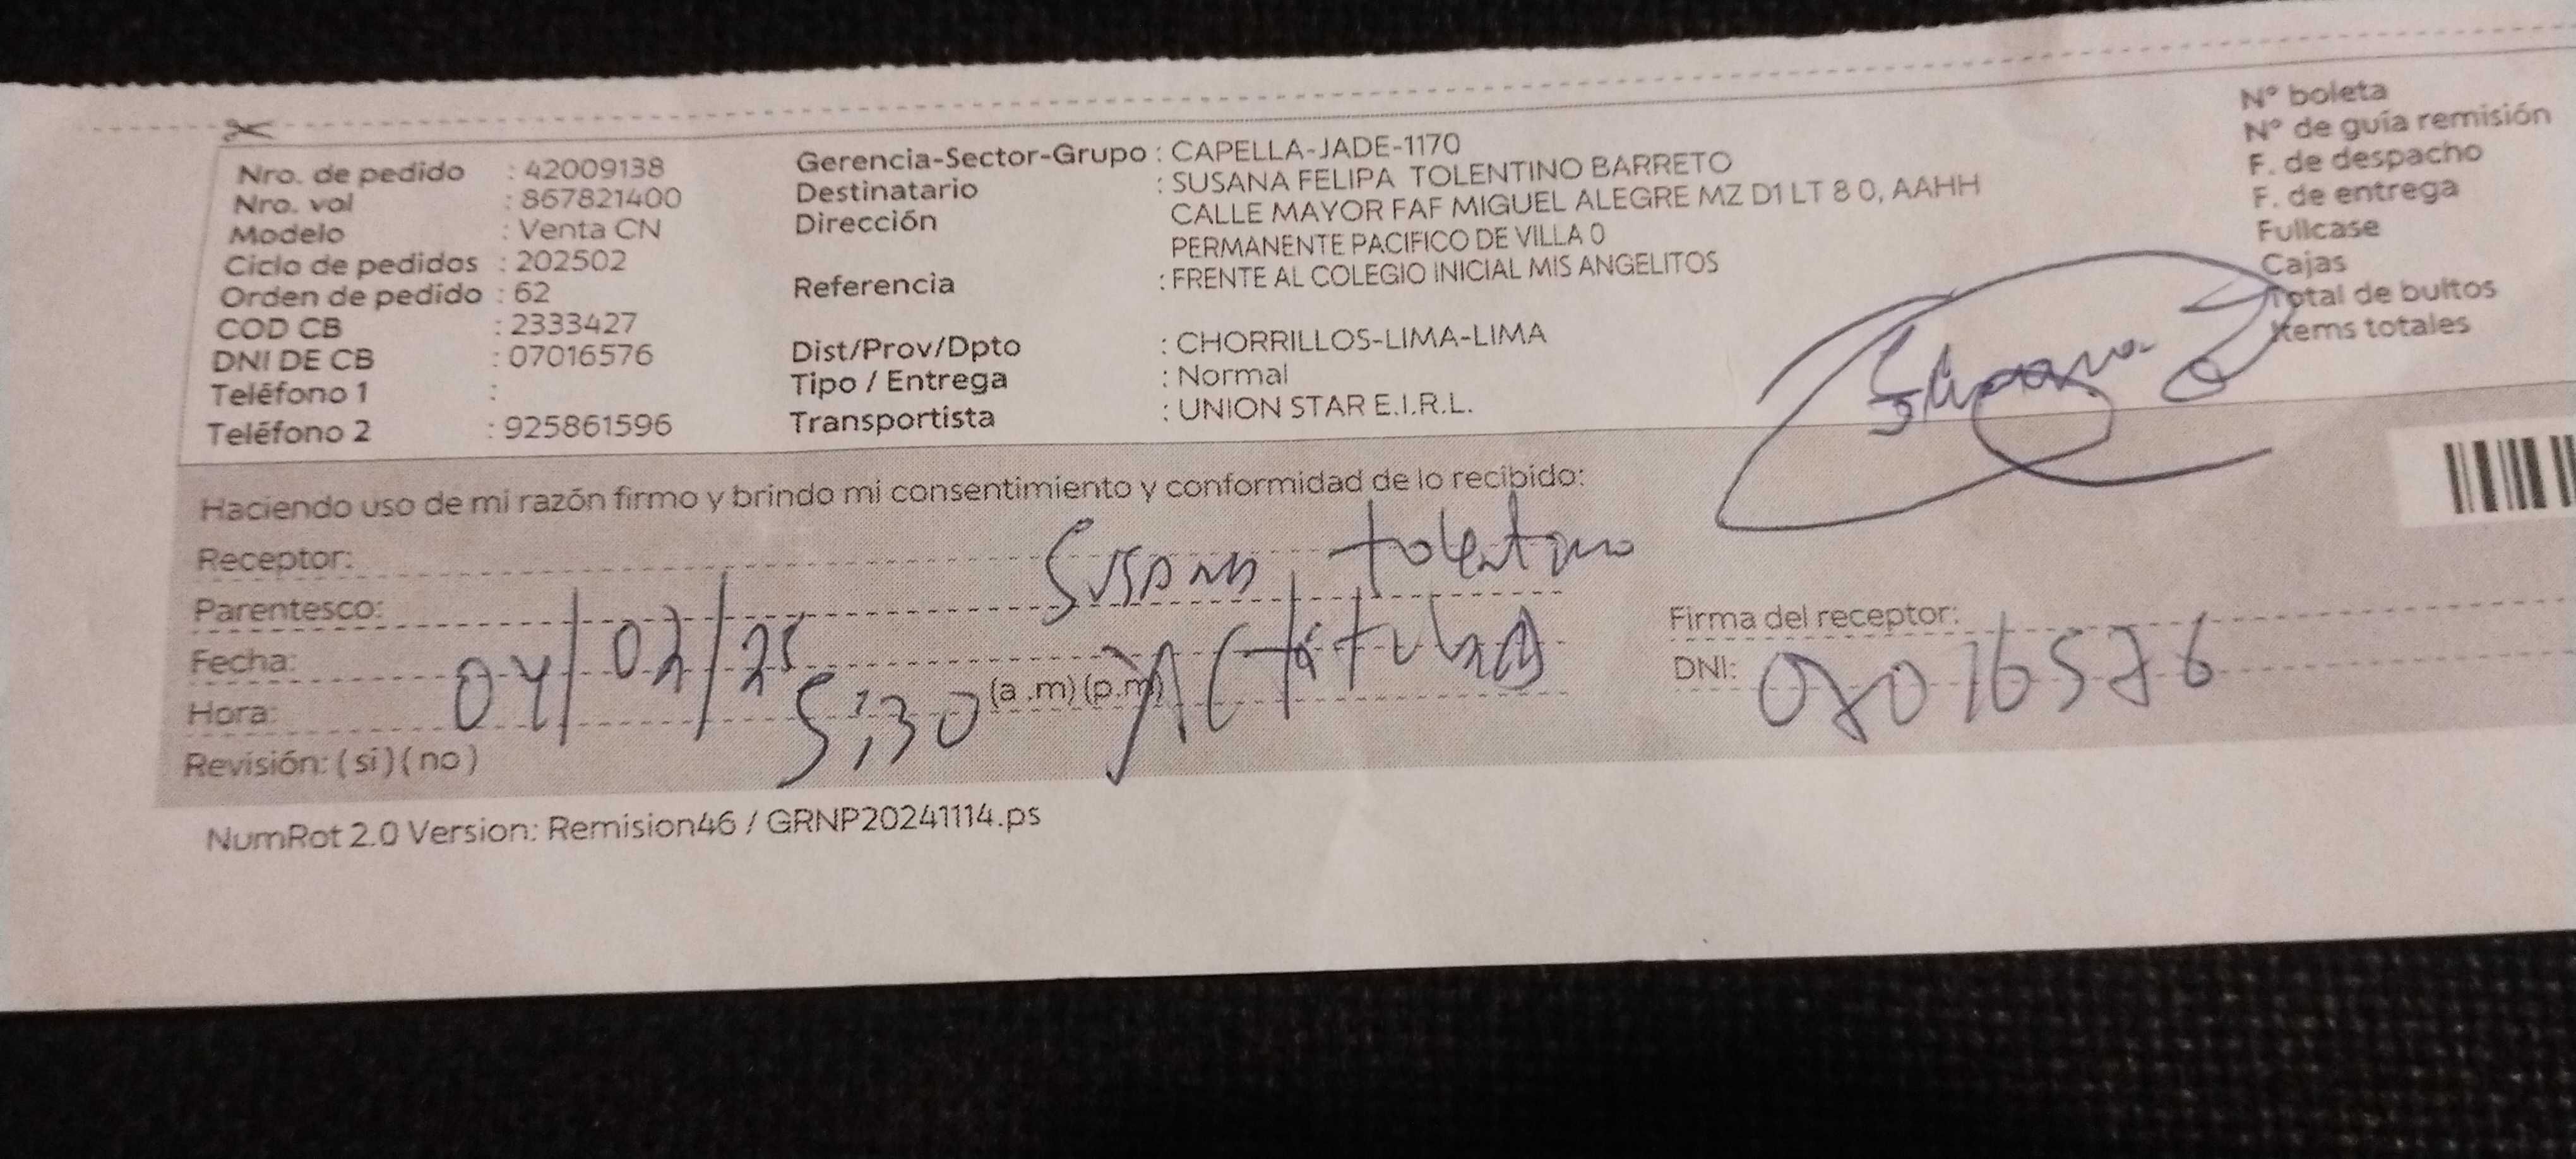 Nro. de pedido : 42009138
Nro. vol : 867821400
Modelo : Venta CN
Ciclo de pedidos : 202502
Orden de pedido : 62
COD CB : 2333427
DNI DE CB : 07016576
Teléfono 1 :
Teléfono 2 : 925861596
Gerencia-Sector-Grupo : CAPELLA-JADE-1170
Destinatario : SUSANA FELIPA TOLENTINO BARRETO
Dirección CALLE MAYOR FAF MIGUEL ALEGRE MZ D1 LT 8 0, AAHH
PERMANENTE PACIFICO DE VILLA 0
Referencia : FRENTE AL COLEGIO INICIAL MIS ANGELITOS
Dist/Prov/Dpto : CHORRILLOS-LIMA-LIMA
Tipo / Entrega : Normal
Transportista : UNION STAR E.I.R.L.
N° boleta
N° de guía remisión
F. de despacho
F. de entrega
Fullcase
Cajas
Total de bultos
Items totales
Haciendo uso de mi razón firmo y brindo mi consentimiento y conformidad de lo recibido:
Receptor: Susana tolentino
Parentesco:
Fecha: 04/02/25
Hora: 5:30 (a .m) (p.m)
Revisión: ( si ) ( no )
Firma del receptor:
DNI: 07016576
NumRot 2.0 Version: Remision46 / GRNP20241114.ps